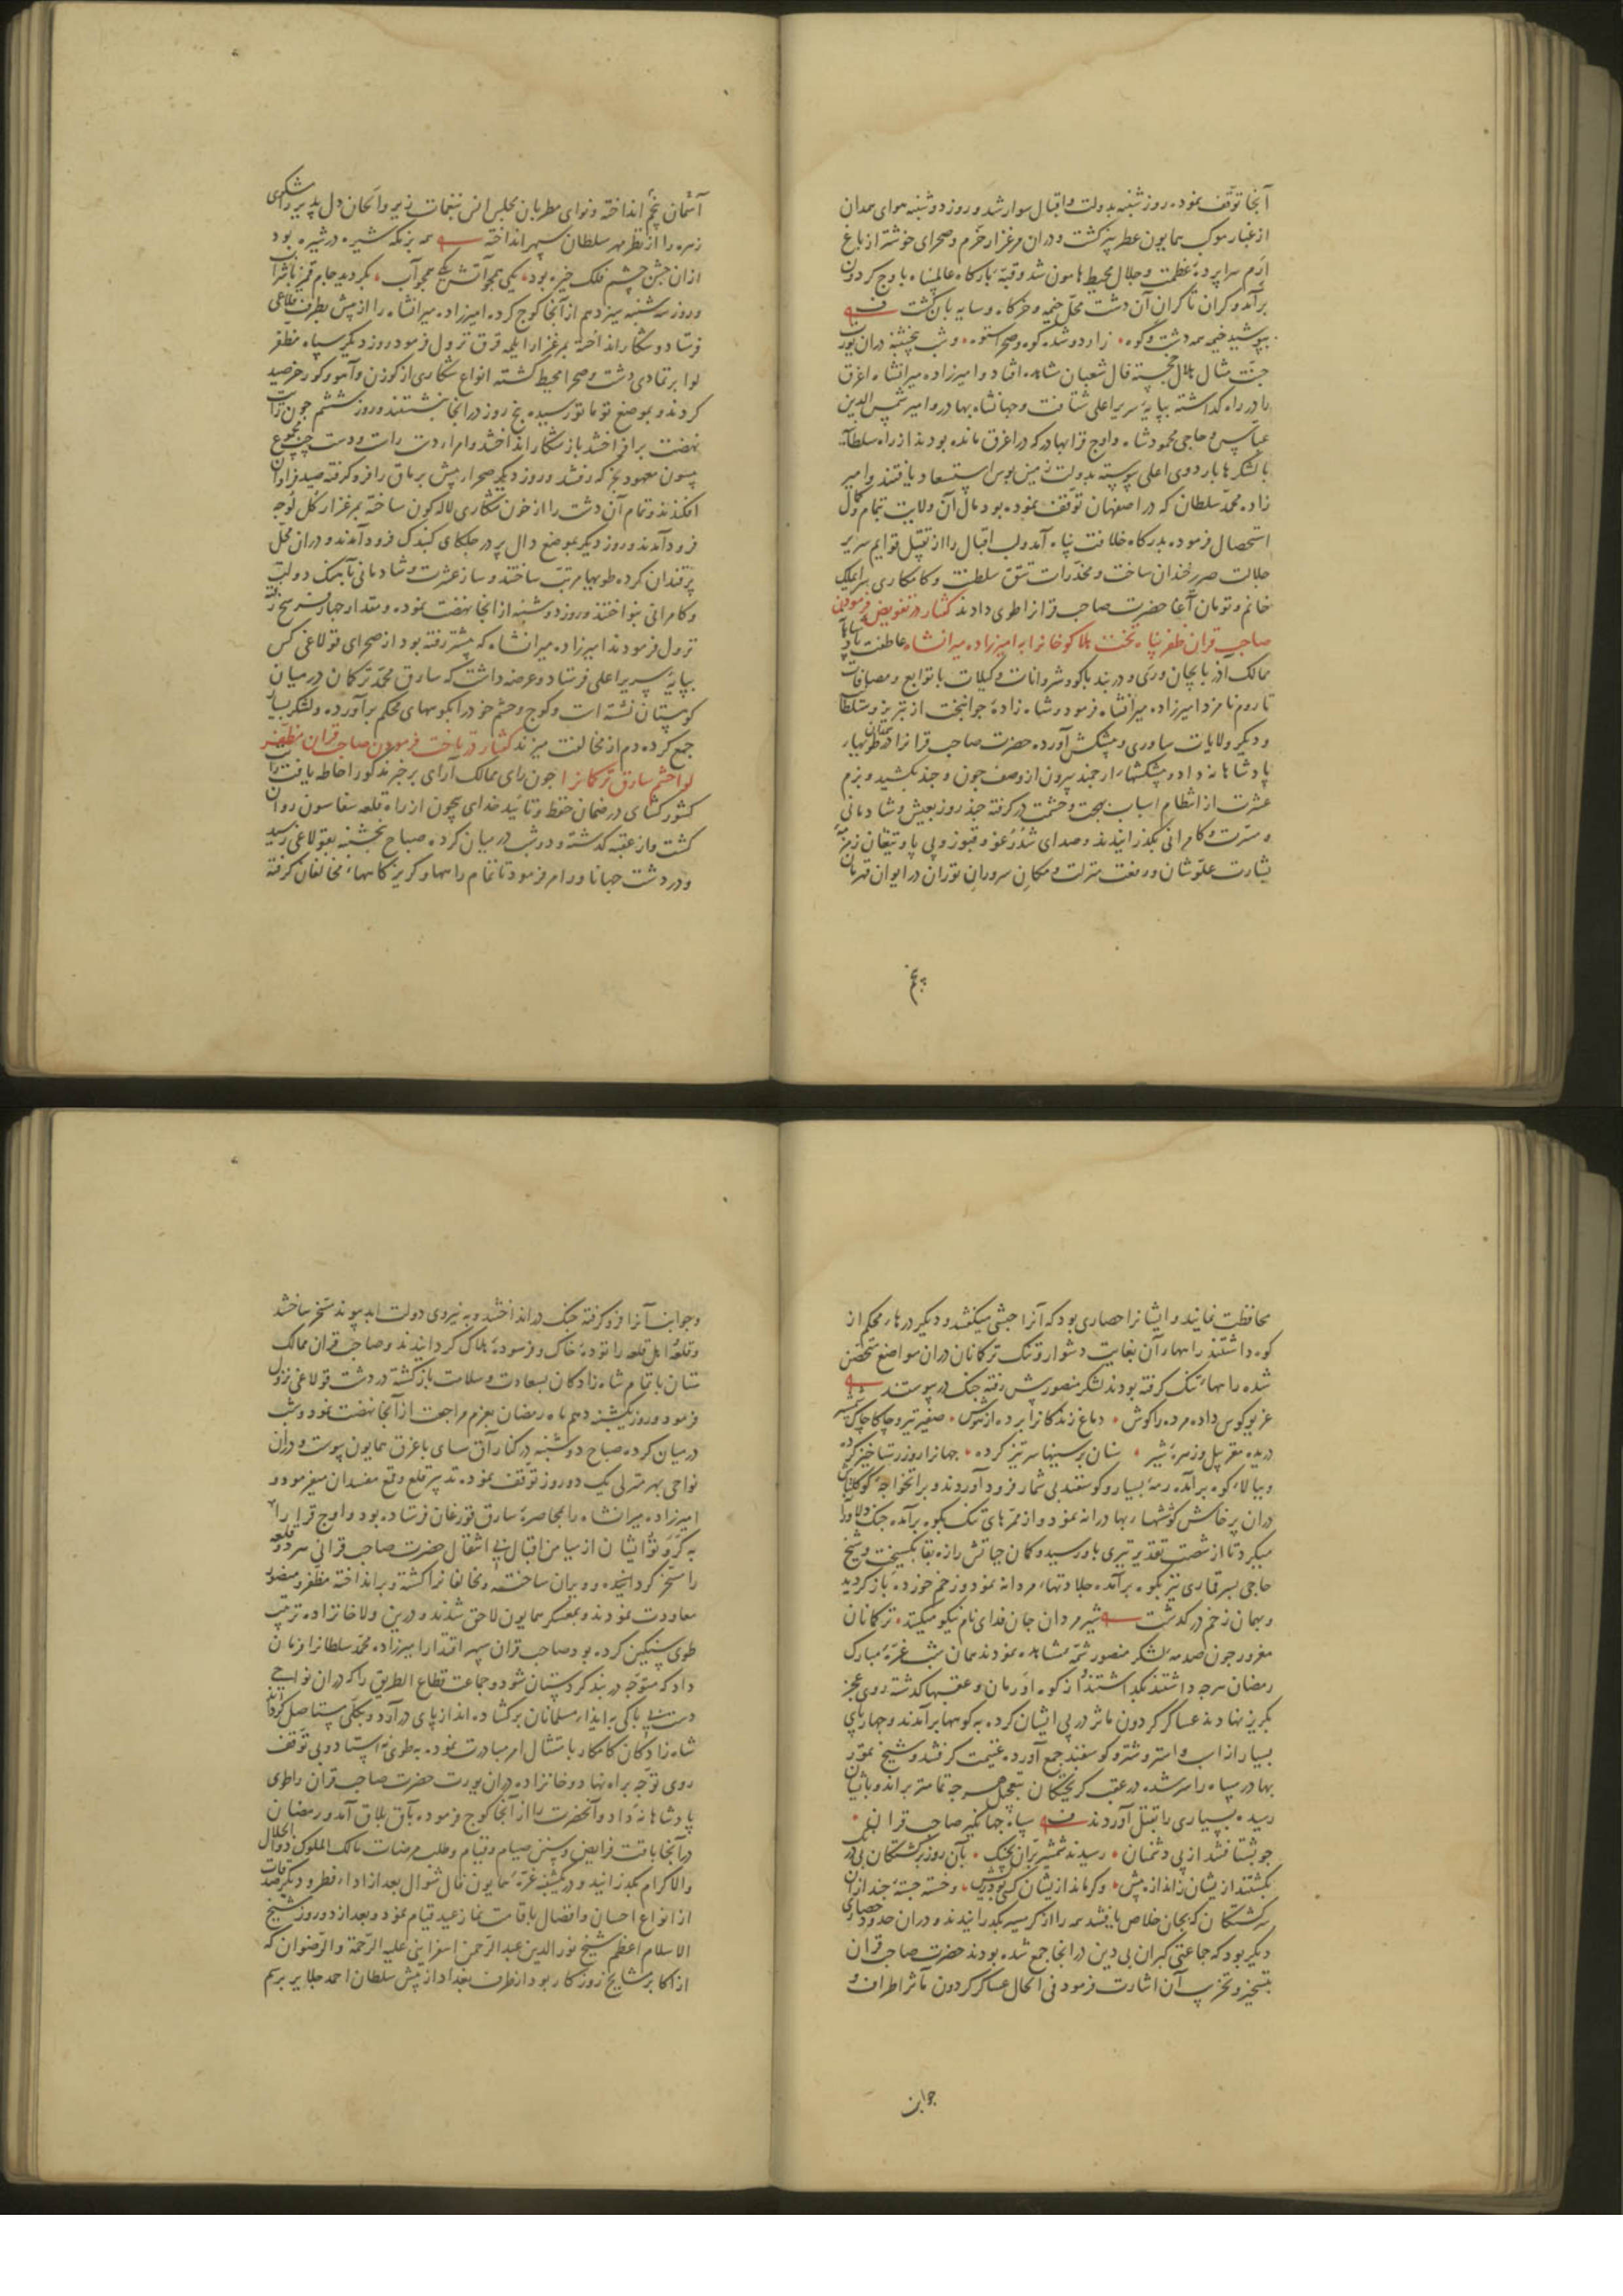 آنجا توقف نموده روز شنبه بدولت و اقبال سوار شد و روز دوشنبه هوای همدان
از غبار موکب همایون عطر بیز گشت و دران مرغزار خرم و صحرای خوشتر از باغ
ارم سراپرده عظمت و جلال محیط هامون شد و قبه بارگاه عالم پناه باوج گردون
برآمد و کران تا کران آن دشت محل خیمه و خرگاه و سایه بان گشت
بپوشید خیمه همه دشت و کوه زاردو شده کوه و صحرا ستوه و شب پنجشنبه دران یورت
جنت مثال هلال خجسته فال شعبان مشاهده افتاد و امیرزاده میرانشاه اغرق
را در راه گذاشته بپایه سریر اعلی شتافت و جهانشاه بهادر و امیر شمس الدین
عباس و حاجی محمود شاه و اوج قرا بهادر که در اغرق مانده بودند از راه سلطانیه
با لشکرها باردوی اعلی پیوسته بدولت زمین بوس استسعاد یافتند و امیر
زاده محمد سلطان که در اصفهان توقف نموده بود و مال آن ولایت بتمام و کمال
استحصال فرموده بدرگاه خلافت پناه آمد و لب اقبال را از تقبیل قوایم سریر
جلالت صریر خندان ساخت و مخدرات تتق سلطنت و کامکاری سرای ملک
خانم و تومان آغا حضرت صاحب قرانرا طوی دادند گفتار در تفویض فرمودن
صاحب قران ظفر پناه تخت هلاکو خانرا به امیرزاده میرانشاه عاطفت پادشاهانه
ممالک آذربایجان و ری و دربند باکو و شروانات و گیلات با توابع و مضافات
تا روم نامزد امیرزاده میرانشاه فرمود و شاه زاده جوانبخت از تبریز و سلطانیه
و دیگر ولایات ساوری و پیشکش آورده حضرت صاحب قرانرا در همدان طوبهای
پادشاهانه داد و پیشکشها ارجمند بیرون از وصف چون و چند بکشید و بزم
عشرت از انتظام اسباب بهجت و حشمت در گرفته چند روز بعیش و شادمانی
و مسرت و کامرانی بگذرانیدند و صدای شدرغو و قبوز و یی پا و تیغان زمزمه
بشارت علو شان و رفعت منزلت و مکان سروران توران در ایوان قهرمان
پنجم
آسمان پنجم انداخته و نوای مطربان مجلس انس بنغمات بزیر و الحان دل پذیر رامشگری
زهره را از نظر مهر سلطان سپهر انداخته همه بزمگه شیره در شیره بود
ازان جشن چشم فلک خیره بود یکی همچو آتش یکی همچو آب بگردید جام قمیز با شراب
و روز سه شنبه سیزدهم از آنجا کوچ کرده امیرزاده میرانشاه را از پیش بطرف قلاغی
فرستاد و شکار انداخته بمرغزار ایلمه قرق نزول فرمود روز دیگر سپاه مظفر
لوا بر تمادی دشت و صحرا محیط گشته انواع شکاری از گوزن و آهو و گورخر صید
کردند و بموضع توماتو رسیده پنج روز درانجا بنشستند و روز ششم چون رایت
نهضت برافراختند باز شکار انداختند و امراء دست راست و دست چپ بمجموع
یسون معهود بجرکه رفتند و روز دیگر صحراء پیش برماق را فرو گرفته صید فراوان
افکندند و تمام آن دشت را از خون شکاری لاله گون ساخته بمرغزار گل لوجه
فرود آمدند و روز دیگر بموضع دال پر در جلکای گنبدک فرود آمدند و دران محل
پرقندان کرده طوبها مرتب ساختند و ساز عشرت و شادمانی بآهنگ دولت
و کامرانی بنواختند و روز دوشنبه از انجا نهضت نموده و مقدار چهار فرسخ رفته
نزول فرمودند امیرزاده میرانشاه که پیشتر رفته بود از صحرای قولاغی کس
بپایه سریر اعلی فرستاد و عرضه داشت که سارق محمد ترکمان در میان
کوهستان نشسته است و کوچ و حشم خود را بکوههای محکم برآورده و لشکر بسیار
جمع کرده دم از مخالفت میزند گفتار در تاخت فرمودن صاحب قران مظفر
لوا حشم سارق ترکمانرا چون رای ممالک آرای بر خبر مذکور احاطه یافت رایت
کشور کشای در ضمان حفظ و تائید خدای بیچون از راه قلعه سفاسون روان
گشت و از عقبه گذشته و دو شب در میان کرده صباح پنجشنبه بقولاغی رسید
و در دشت جهانا و را امر فرمود تا تمام راهها و گریزگاهها مخالفان گرفته
محافظت نمایند و ایشانرا حصاری بود که آنرا حبشی میگفتند و دیگر درهاء محکم از
کوه داشتند راههاء آن بغایت دشوار و تنگ ترکمانان دران مواضع متحصن
شده راهها تنگ گرفته بودند لشکر منصور پیش رفته جنگ در پیوستند
غریو کوس داده مرده را گوش دماغ زندگانرا برده از هوش صفیر تیر و چاکاچاک شمشیر
دریده مغز پیل و زهره شیر سنان بر سینها سر تیز کرده جهانرا روز رستاخیز کرده
و ببالاء کوه برآمده رمه بسیار و گوسفند بی شمار فرود آوردند و برلاخواجه کوکلتاش
دران پرخاش کوششهاء بهادرانه نمود و از ممرهای تنگ بکوه برآمده جنگ دلاورانه
میکرد تا از شصت تقدیر تیری باو رسید و کمان حیاتش را زه بقا بگسیخت و شیخ
حاجی پسر قماری نیز بکوه برآمده جلادتهاء مردانه نمود و زخم خورده بازگردید
و بهمان زخم درگذشت شیر مردان جان فدای نام نیکو میکنند ترکمانان
مغرور چون صدمه لشکر منصور شمه مشاهده نمودند همان شب غره مبارک
رمضان هرچه داشتند بگذاشتند و از کوه او رمان و عقبها گذشته روی عجز
بگریز نهادند عساکر گردون مآثر در پی ایشان کرده به کوهها برآمدند و چهارپای
بسیار از اسب و استر و شتر و گوسفند جمع آورده غنیمت گرفتند و شیخ تمور
بهادر سپاه را سر شده در عقب گریختگان بتعجیل هرچه تمامتر براند و باثیان
رسیده بسیاری را بقتل آوردند سپاه جهانگیر صاحب قران
چو بشتافتند از پی دشمنان رسیدند شمشیر بران بچنگ بآن روز برگشتگان بی درنگ
بکشتند ازیشان زاندازه بیش وگر ماند ازیشان کسی بود ریش و خسته جسته چند ازان
سرگشتگان که بجان خلاص یافتند همه را از گرمسیر بگذرانیدند و دران حدود حصاری
دیگر بود که جماعتی گبران بی دین درانجا جمع شده بودند حضرت صاحب قران
بتسخیر و تخریب آن اشارت فرمود فی الحال عساکر گردون مآثر اطراف و
جوانب
و جوانب آنرا فرو گرفته جنگ در انداختند و به نیروی دولت ابد پیوند مسخر ساختند
و قلعه و اهل قلعه را توده خاک و فرسوده هلاک گردانیدند و صاحب قران ممالک
ستان با تمام شاه زادگان بسعادت و سلامت بازگشته در دشت قولاغی نزول
فرمود و روز یکشنبه دهم ماه رمضان بعزم مراجعت از آنجا نهضت نمود و شب
درمیان کرده صباح دوشنبه در کنار آق سای باغرق همایون پیوست و دران
نواحی بهر منزلی یک دو روز توقف نموده تدبیر قلع و قمع مفسدان میفرمود و
امیرزاده میرانشاه را بمحاصره سارق قورغان فرستاده بود و اوج قرا بهادر را
به کرو توّ ایشان از میامن اقبال بی انتقال حضرت صاحب قرانی هر دو قلعه
را مسخر گردانیده و ویران ساخته و مخالفانرا کشته و برانداخته مظفر و منصور
معاودت نمودند و بمعسکر همایون لاحق شدند و درین ولا خانزاده ترتیب
طوی سنگین کرده بود صاحب قران سپهر اقتدار امیرزاده محمد سلطانرا فرمان
داد که متوجه دربند کردستان شود و جماعت قطاع الطریق را که دران نواحی
دست بی باکی به ایذاء مسلمانان برگشاده اند از پای درآرد و بکلی مستاصل گرداند
شاه زادگان کامکار بامتثال امر مبادرت نموده به طوی نه استاد و بی توقف
روی توجه براه نهاد و خانزاده دران یورت حضرت صاحب قران را طوی
پادشاهانه داد و آنحضرت را از آنجا کوچ فرموده بآق بلاق آمد و رمضان
درآنجا باقامت فرایض و سنن صیام و قیام و طلب مرضات مالک الملوک ذو الجلال
والاکرام بگذرانید و در یکشنبه غره همایون فال شوال بعد از اداء فطر و دیگر صدقات
از انواع احسان و افضال باقامت نماز عید قیام نمود و بعد از دو روز شیخ
الاسلام اعظم شیخ نورالدین عبدالرحمن اسفراینی علیه الرحمة والرضوان که
از اکابر مشایخ روزگار بود از طرف بغداد از پیش سلطان احمد جلایر برسم